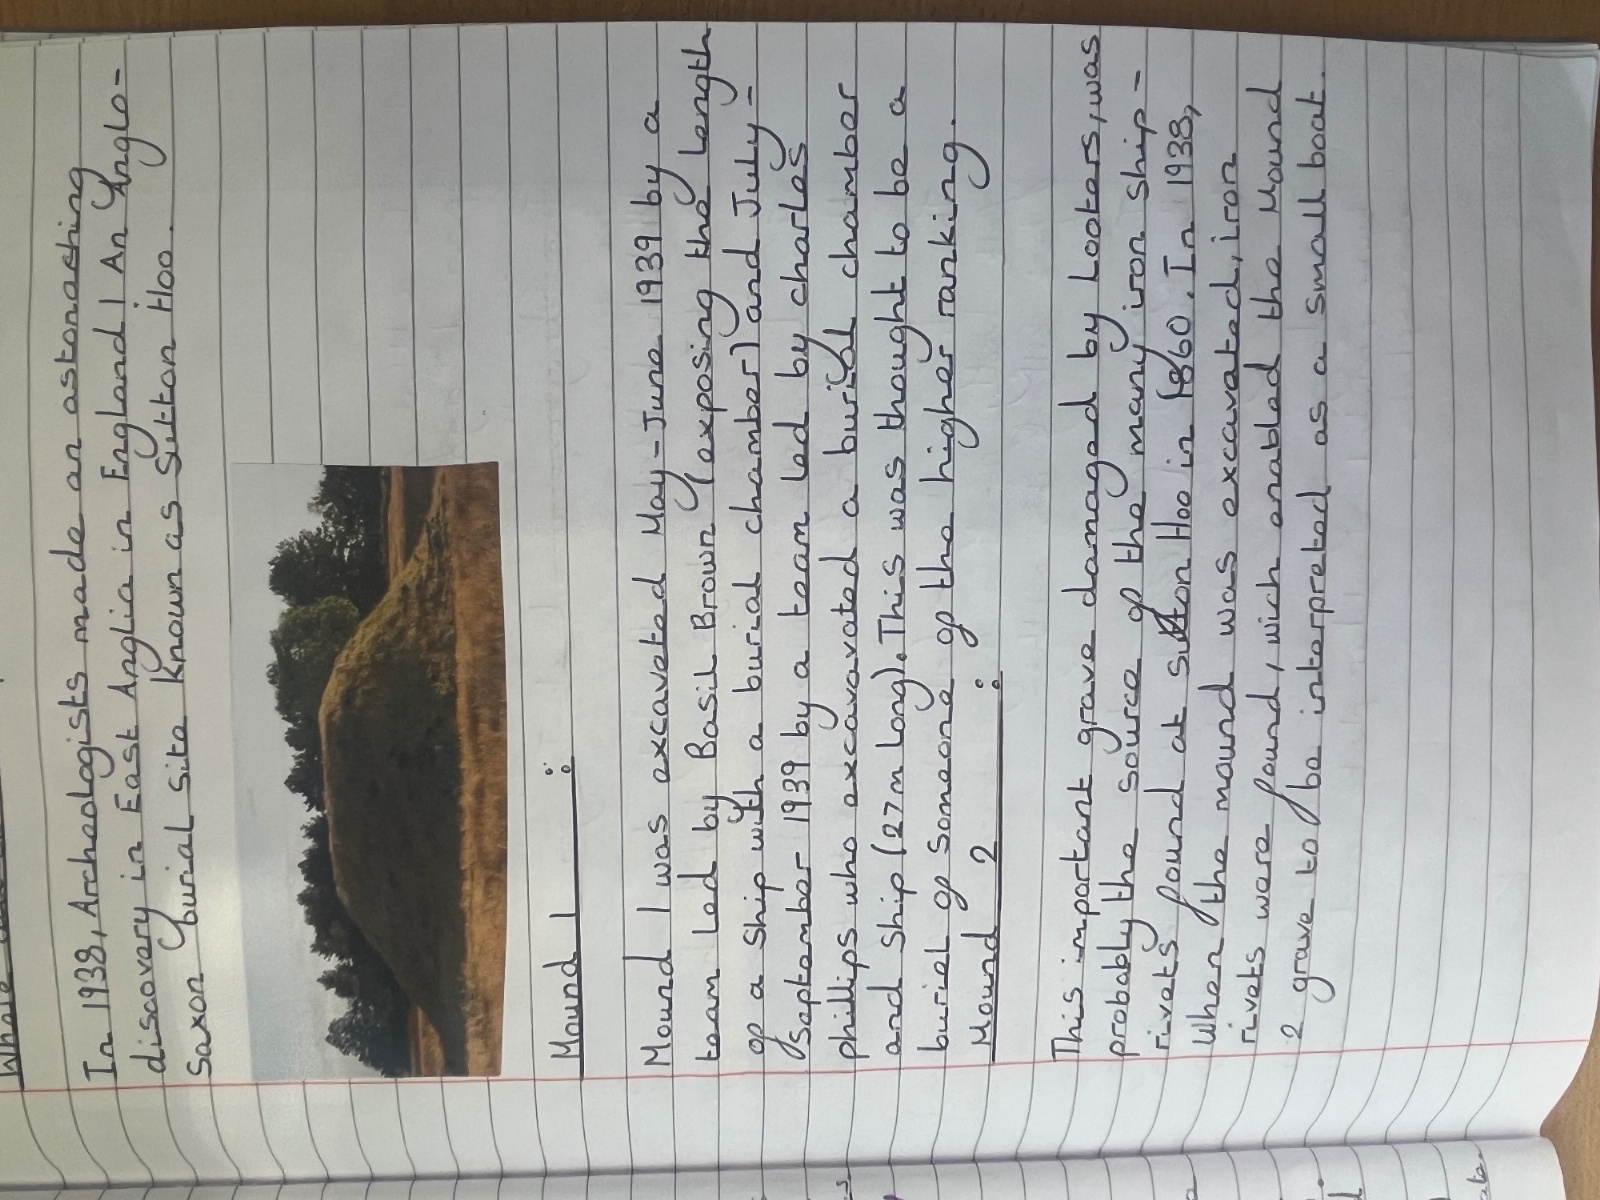 In 1938, Archeologists made an astonashing
discovery in East Anglia in England | An Anglo-
Saxon burial site known as Sutton Hoo.
Mound 1 :
Mound 1 was excavated May-June 1939 by a
team led by Basil Brown (exposing the length
of a ship with a burial chamber) and July-
September 1939 by a team led by charles
phillips who excavavated a burial chamber
and ship (27m long). This was thought to be a
burial of someone of the higher ranking.
Mound 2 :
This important grave damaged by looters, was
probably the source of the many iron ship-
rivets found at sutton Hoo in 1860. In 1938,
when the mound was excavated, iron
rivets were found, wich enabled the Mound
2 grave to be interpreted as a small boat.